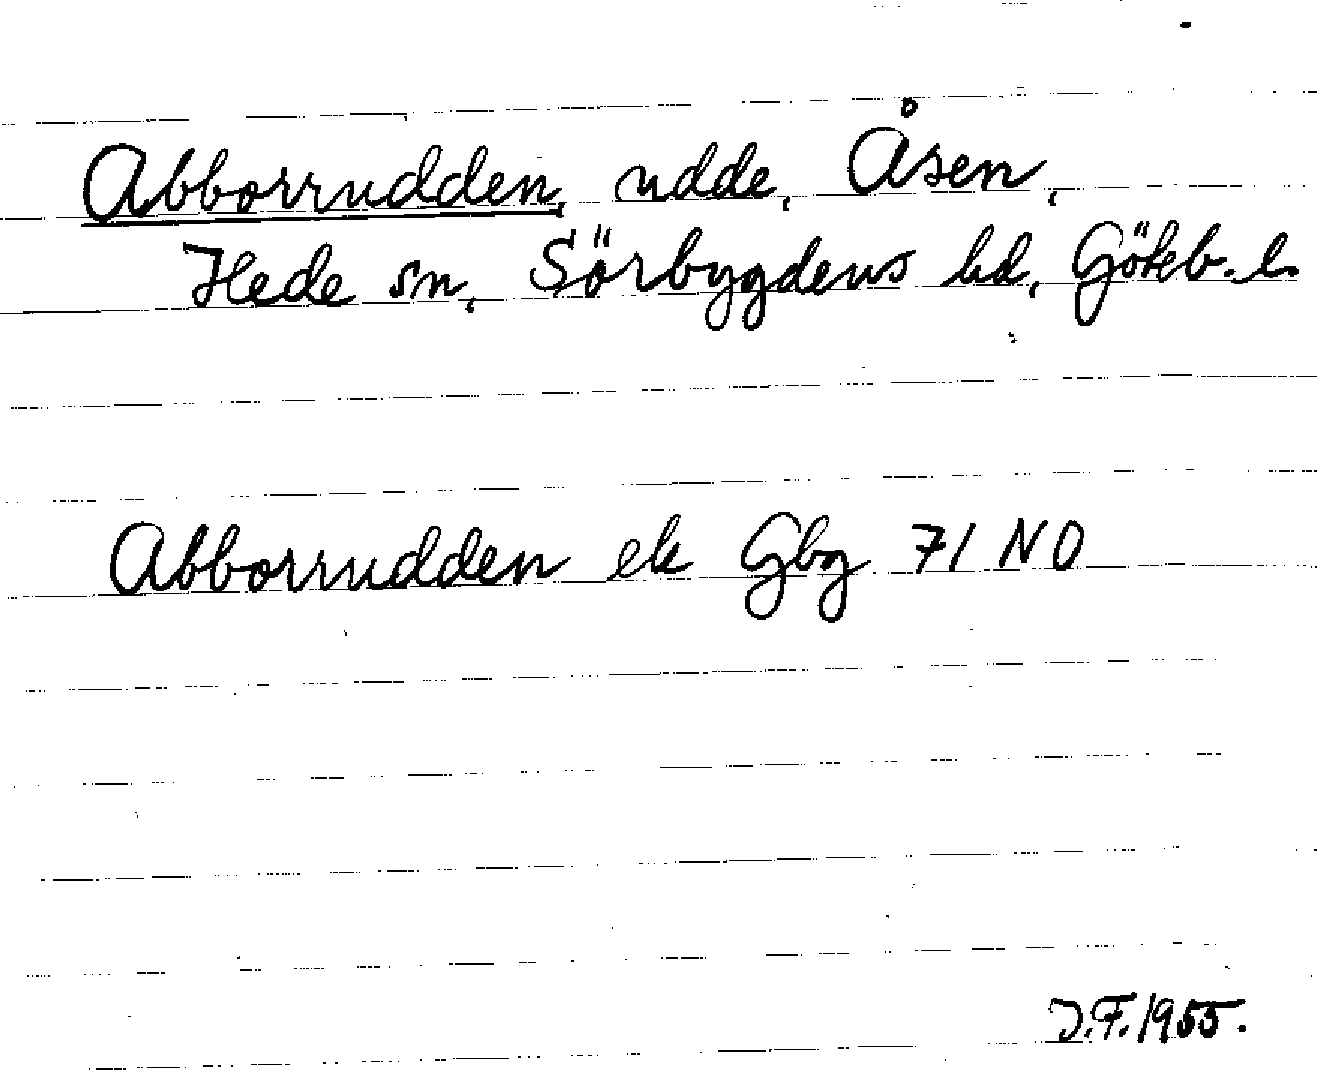 Abborrudden, udde, Åsen,
Hede sn, Sörbygdens hd, Göteb. l.
Abborrudden ek Gbg 71 NO
J.F. 1955.